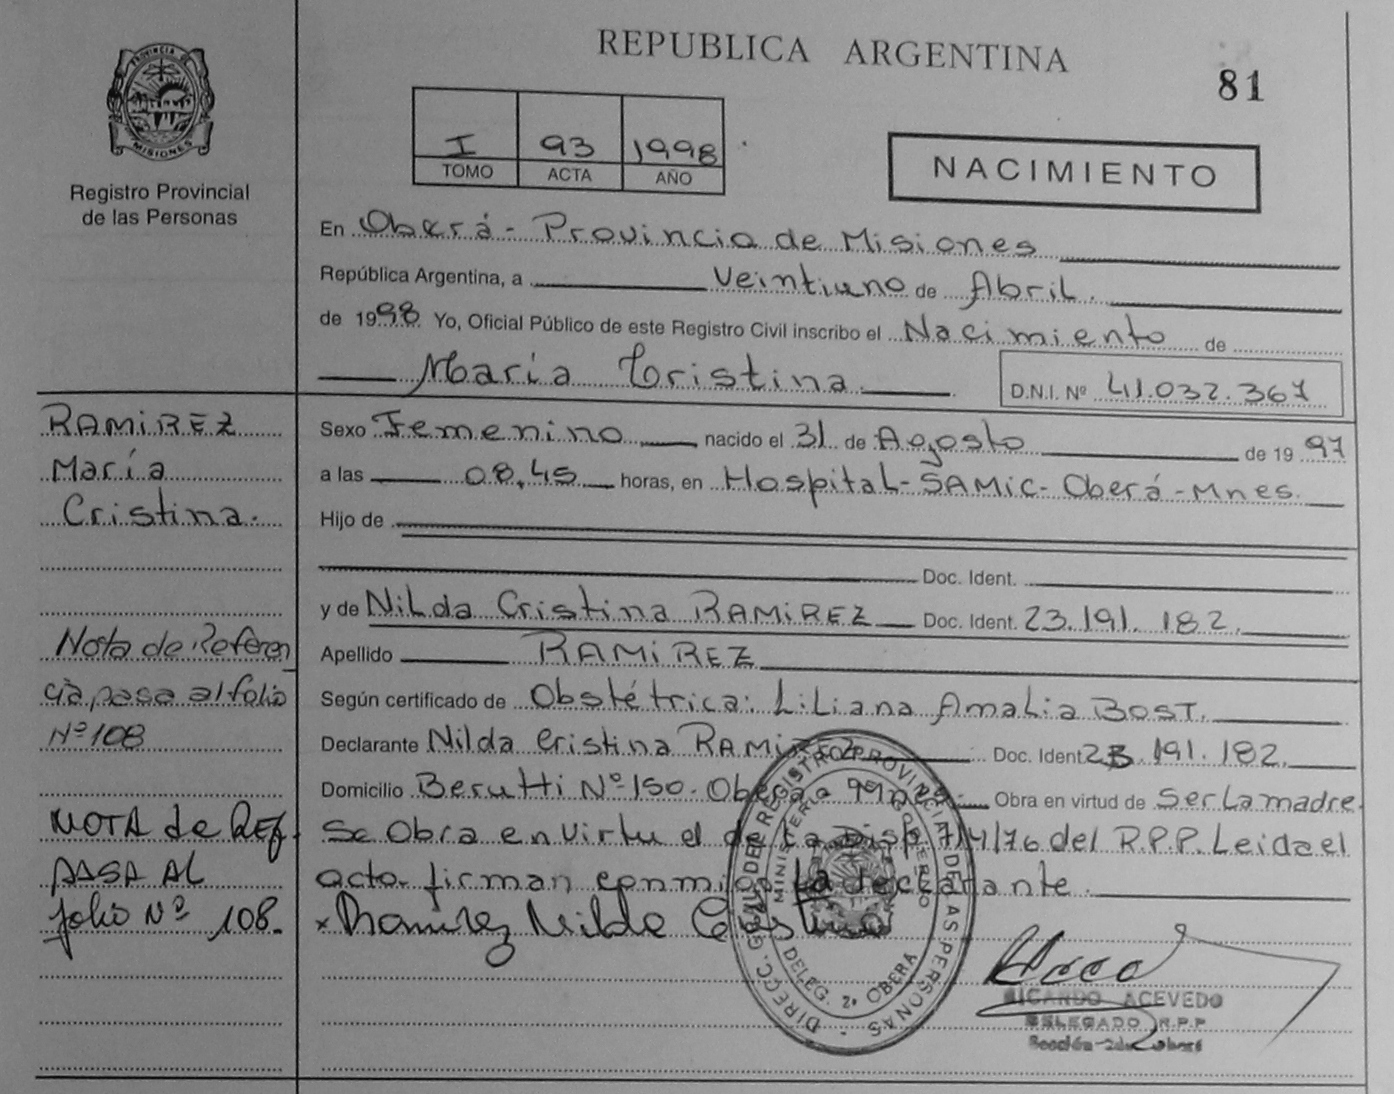 PROVINCIA DE
MISIONES
Registro Provincial
de las Personas
REPUBLICA ARGENTINA
81
I 93 1998
TOMO ACTA AÑO
NACIMIENTO
En Oberá - Provincia de Misiones
República Argentina, a Veintiuno de Abril.
de 1998 Yo, Oficial Público de este Registro Civil inscribo el Nacimiento de
María Cristina D.N.I. Nº 41.032.367
RAMIREZ
María
Cristina.
Sexo Femenino nacido el 31 de Agosto de 1997
a las 08,45 horas, en Hospital - SAMIC - Oberá - Mnes.
Hijo de
Doc. Ident.
y de Nilda Cristina RAMIREZ Doc. Ident. 23.191.182.
Apellido RAMIREZ
Según certificado de Obstétrica: Liliana Amalia BOST.
Declarante Nilda Cristina RAMIREZ Doc. Ident. 23.191.182.
Domicilio Berutti Nº 150. Oberá Mnes. Obra en virtud de Ser La madre.
Se Obra en virtu el de La Disp 7/4/76 del R.P.P. Leida el
acto firman conmigo La declarante.
x Ramirez Nilda Cristina
Nota de Referen
cia pasa al folio
Nº 108
NOTA de REF.
PASA AL
folio Nº 108.
DIRECC. GRAL. DEL REGISTRO PROVINCIAL DE LAS PERSONAS
MINISTERIO DE GOBIERNO
DELEG. 2ª OBERA
RICARDO ACEVEDO
DELEGADO R.P.P
Sección 2da Oberá